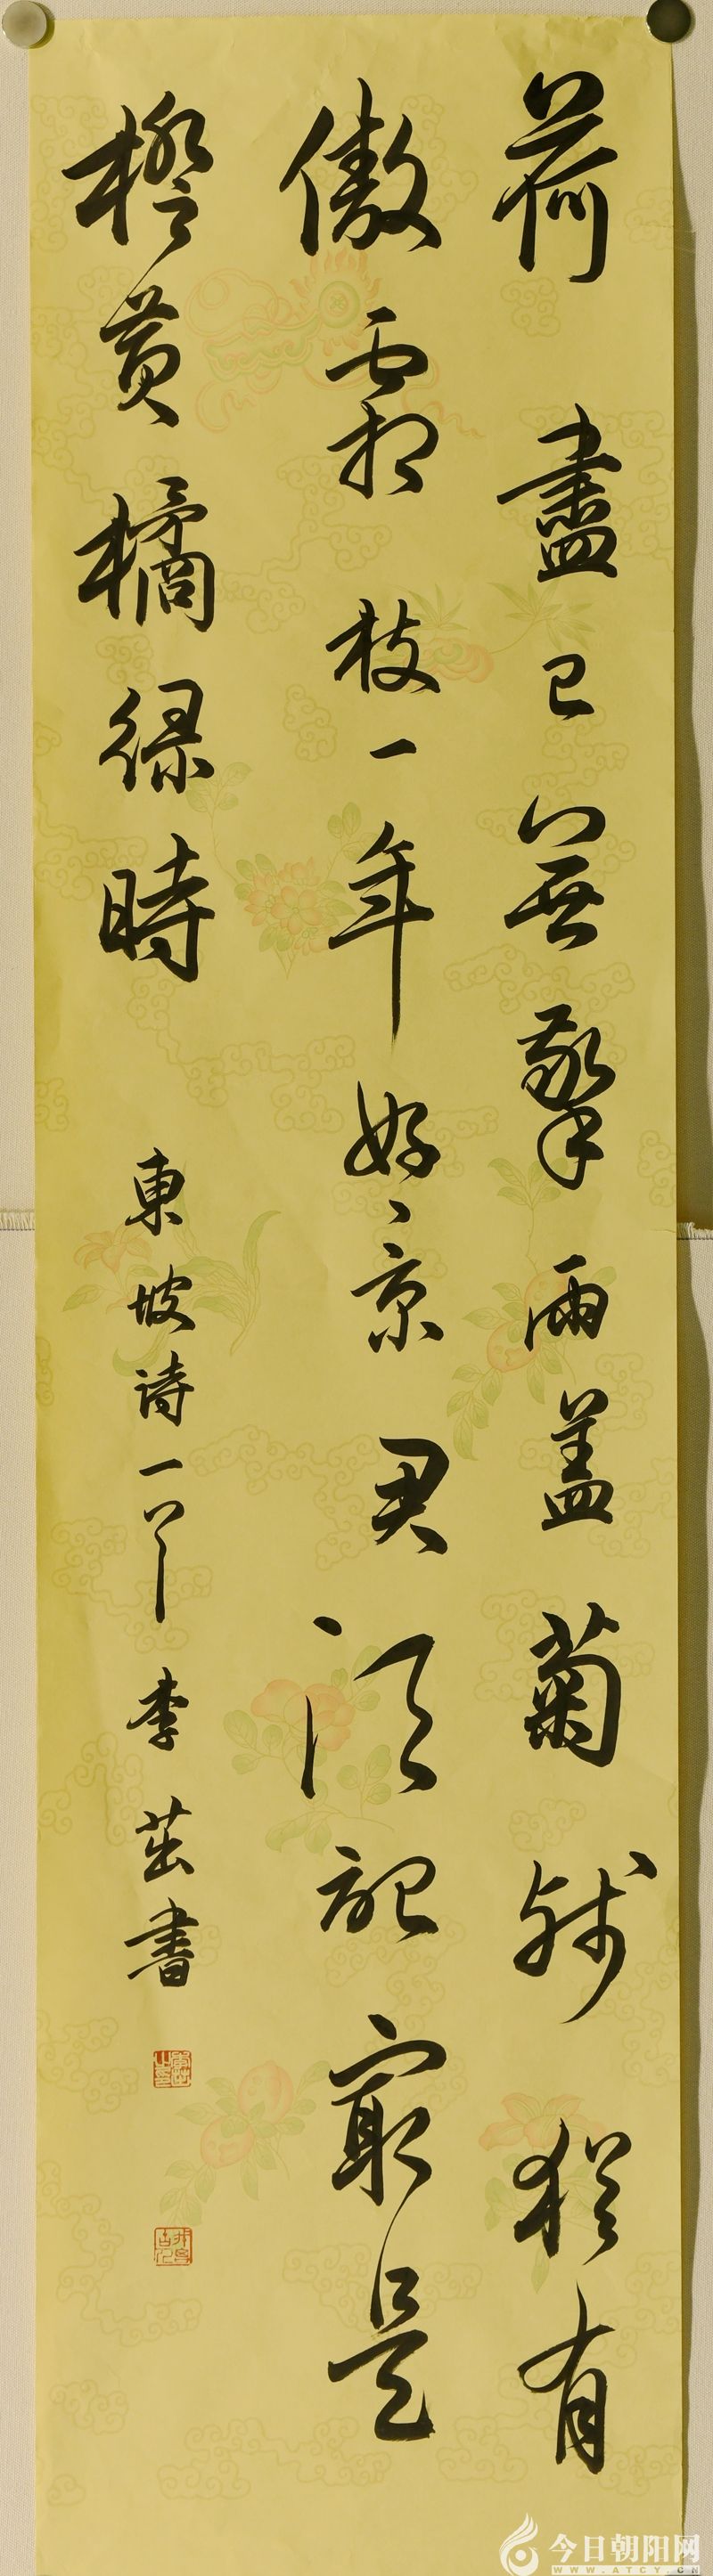 荷盡已無擎雨盖菊殘猶有
傲霜枝一年好景君須記最是
橙黄橘緑時 東坡诗一首 李茁書
今日朝阳网
WWW.ATCY.CN